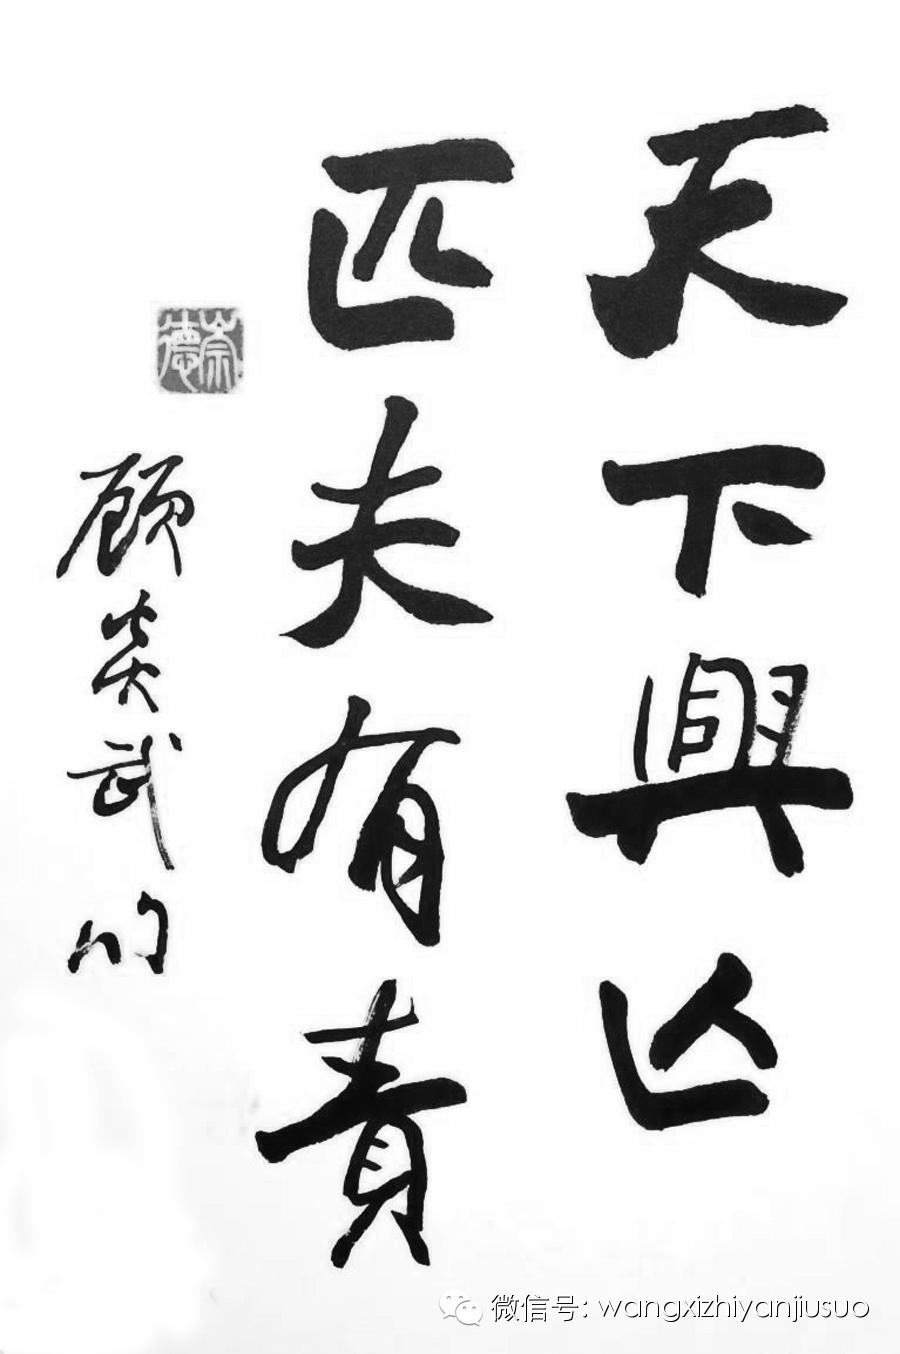 天下興亾
匹夫有責
崇德
顾炎武
微信号: wangxizhiyanjiusuo